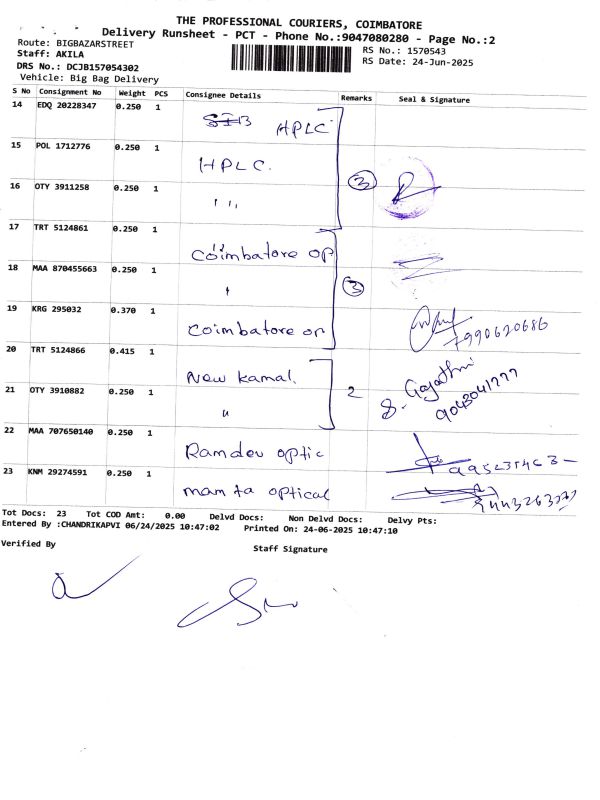 THE PROFESSIONAL COURIERS, COIMBATORE
Delivery Runsheet - PCT - Phone No.:9047080280 - Page No.:2
Route: BIGBAZARSTREET
RS No.: 1570543
Staff: AKILA
RS Date: 24-Jun-2025
DRS No.: DCJB157054302
Vehicle: Big Bag Delivery
S No Consignment No Weight PCS Consignee Details Remarks Seal & Signature
14 EDQ 20228347 0.250 1 HPLC
15 POL 1712776 0.250 1 HPLC.
16 OTY 3911258 0.250 1 " ③
17 TRT 5124861 0.250 1 Coimbatore op
18 MAA 870455663 0.250 1 " ③
19 KRG 295032 0.370 1 Coimbatore op 7990620686
20 TRT 5124866 0.415 1 New kamal.
21 OTY 3910882 0.250 1 " 2
22 MAA 707650140 0.250 1 Ramdev optic
23 KNM 29274591 0.250 1 mamta optical
Tot Docs: 23 Tot COD Amt: 0.00 Delvd Docs: Non Delvd Docs: Delvy Pts:
Entered By :CHANDRIKAPVI 06/24/2025 10:47:02 Printed On: 24-06-2025 10:47:10
Verified By
Staff Signature